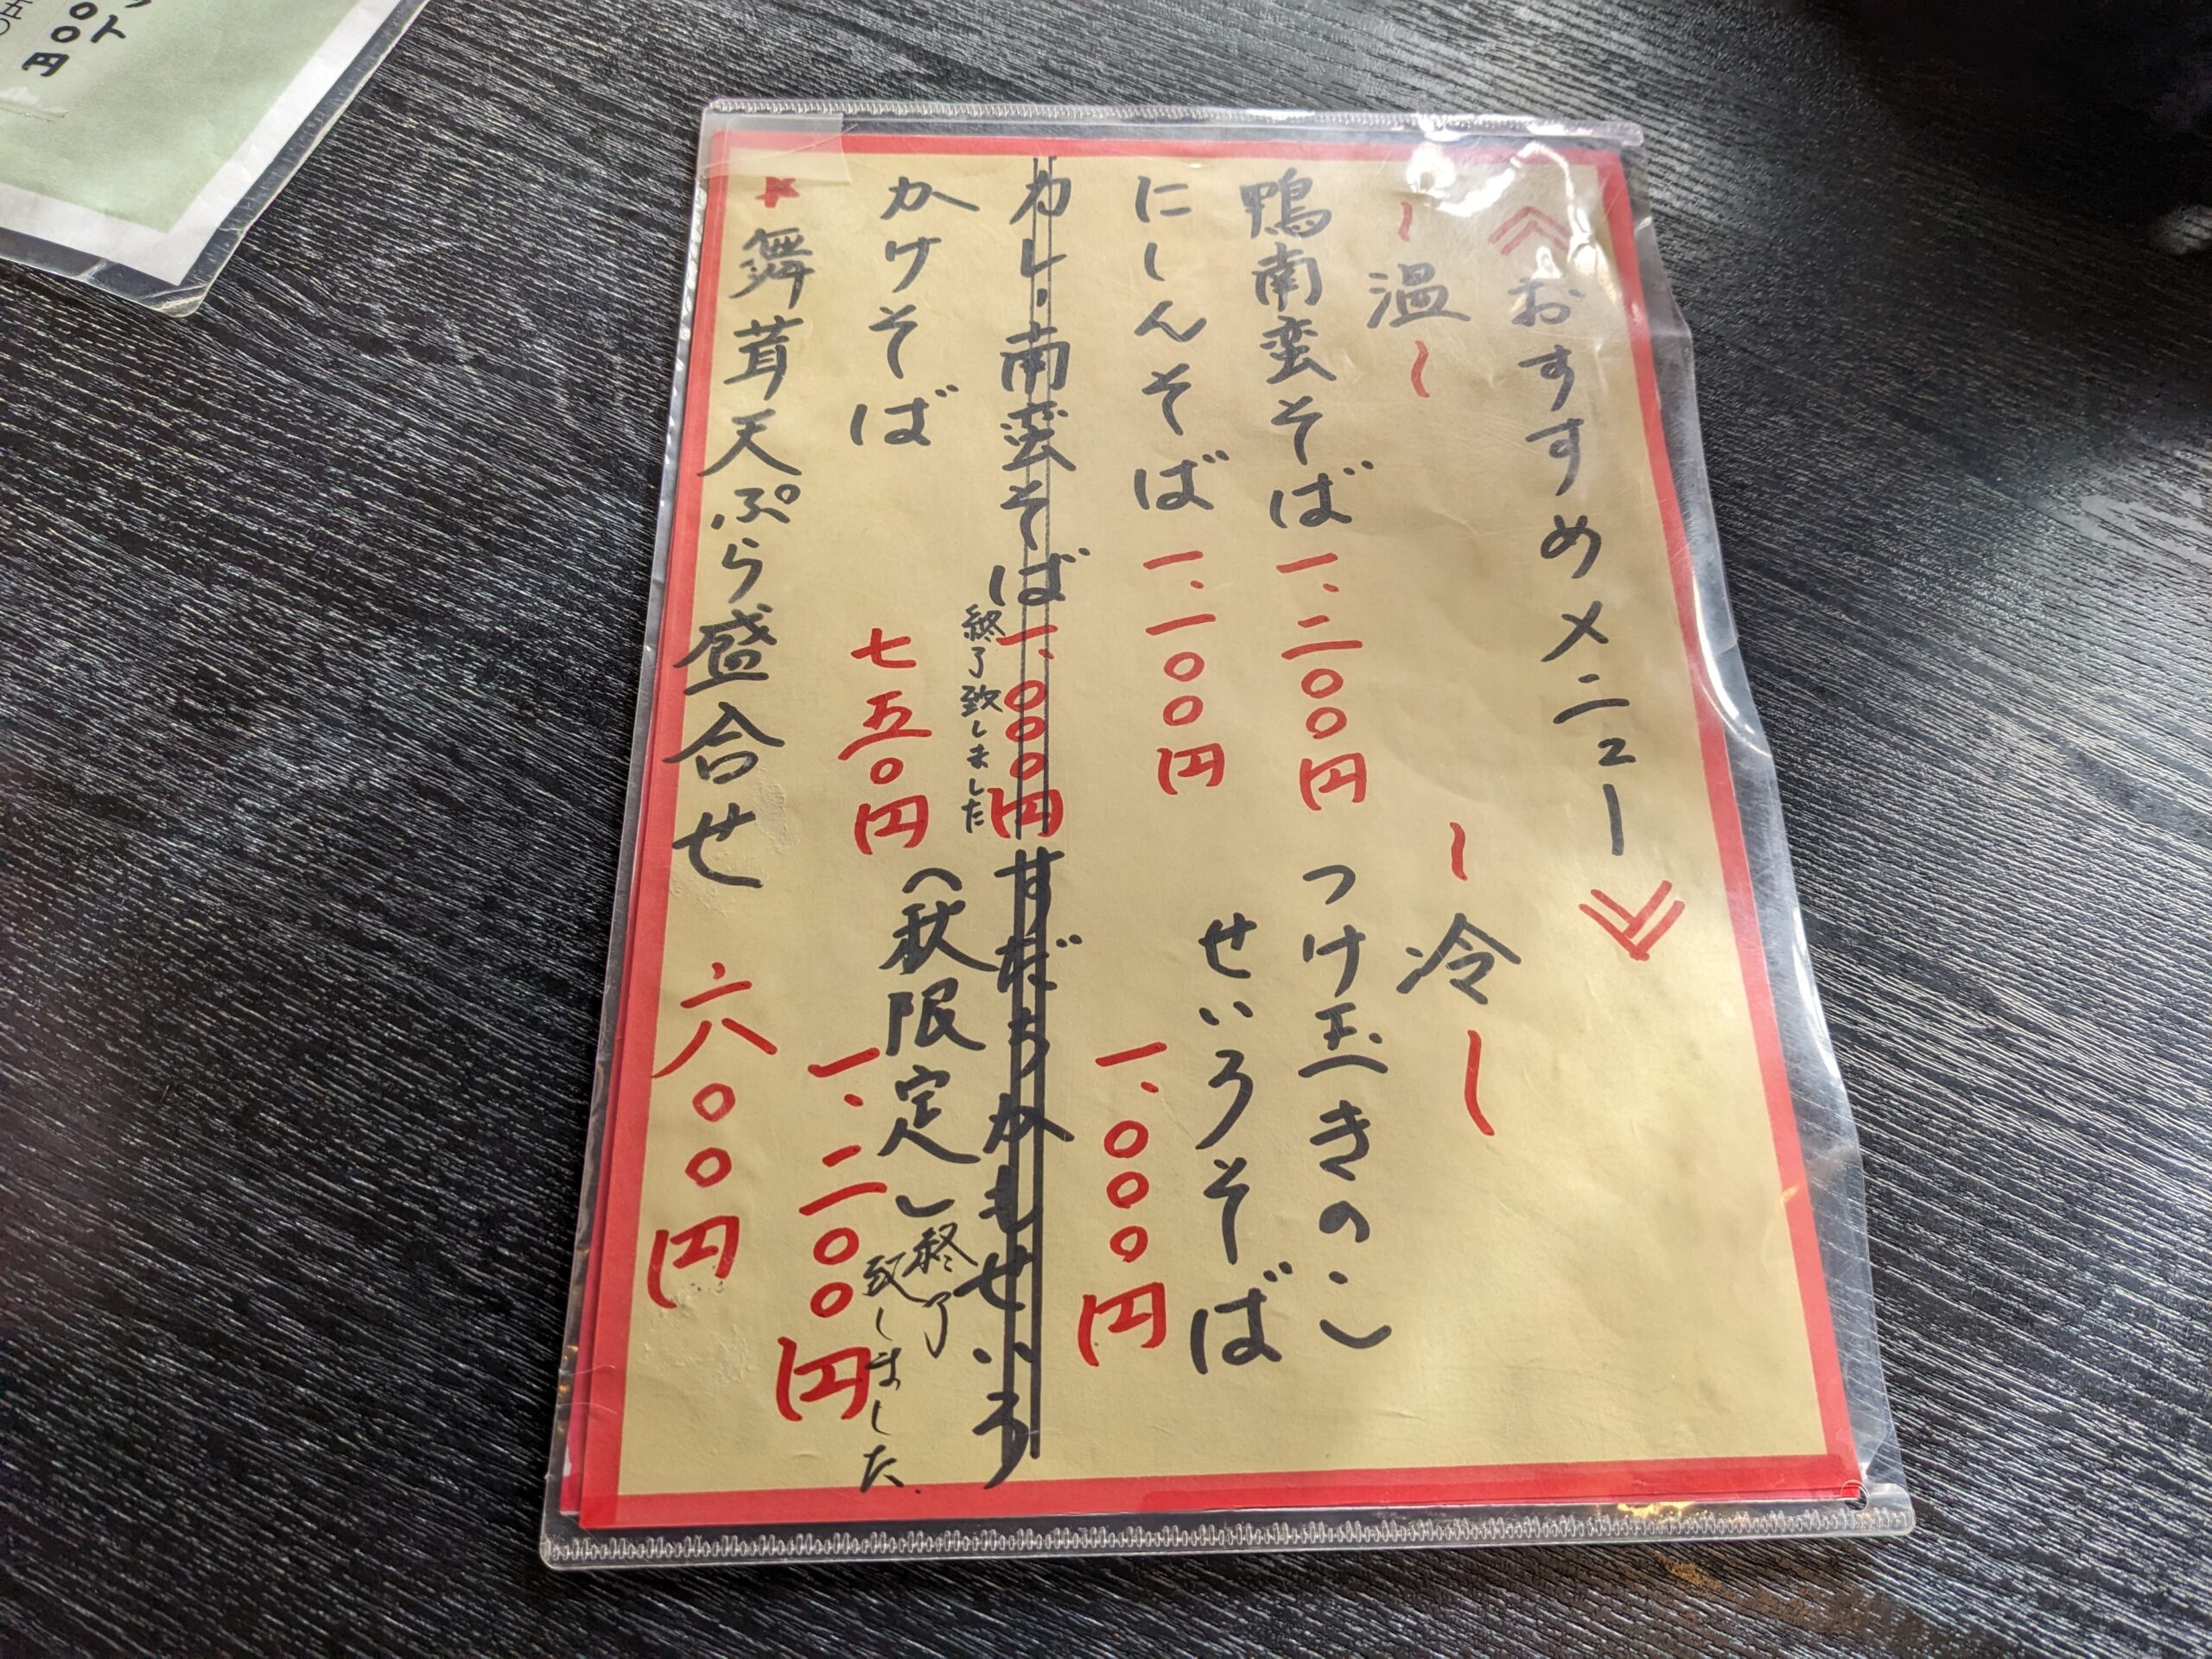 《おすすめメニュー》
~温~
鴨南蛮そば 一、二〇〇円
にしんそば 一、一〇〇円
カレー南蛮そば 一、〇〇〇円
終了致しました
かけそば 七五〇円
~冷~
つけ玉きのこ
せいろそば
一、〇〇〇円
すだちかもせいろ
(秋限定)
終了
致しました
一、二〇〇円
*舞茸天ぷら盛合せ 六〇〇円
〇〇円